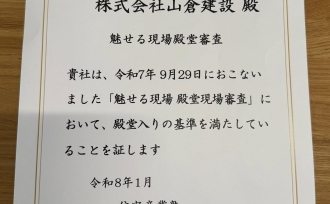 株式会社山倉建設 殿
魅せる現場殿堂審査
貴社は、令和7年 9月29日におこない
ました「魅せる現場 殿堂現場審査」に
おいて、殿堂入りの基準を満たしてい
ることを証します
令和8年1月